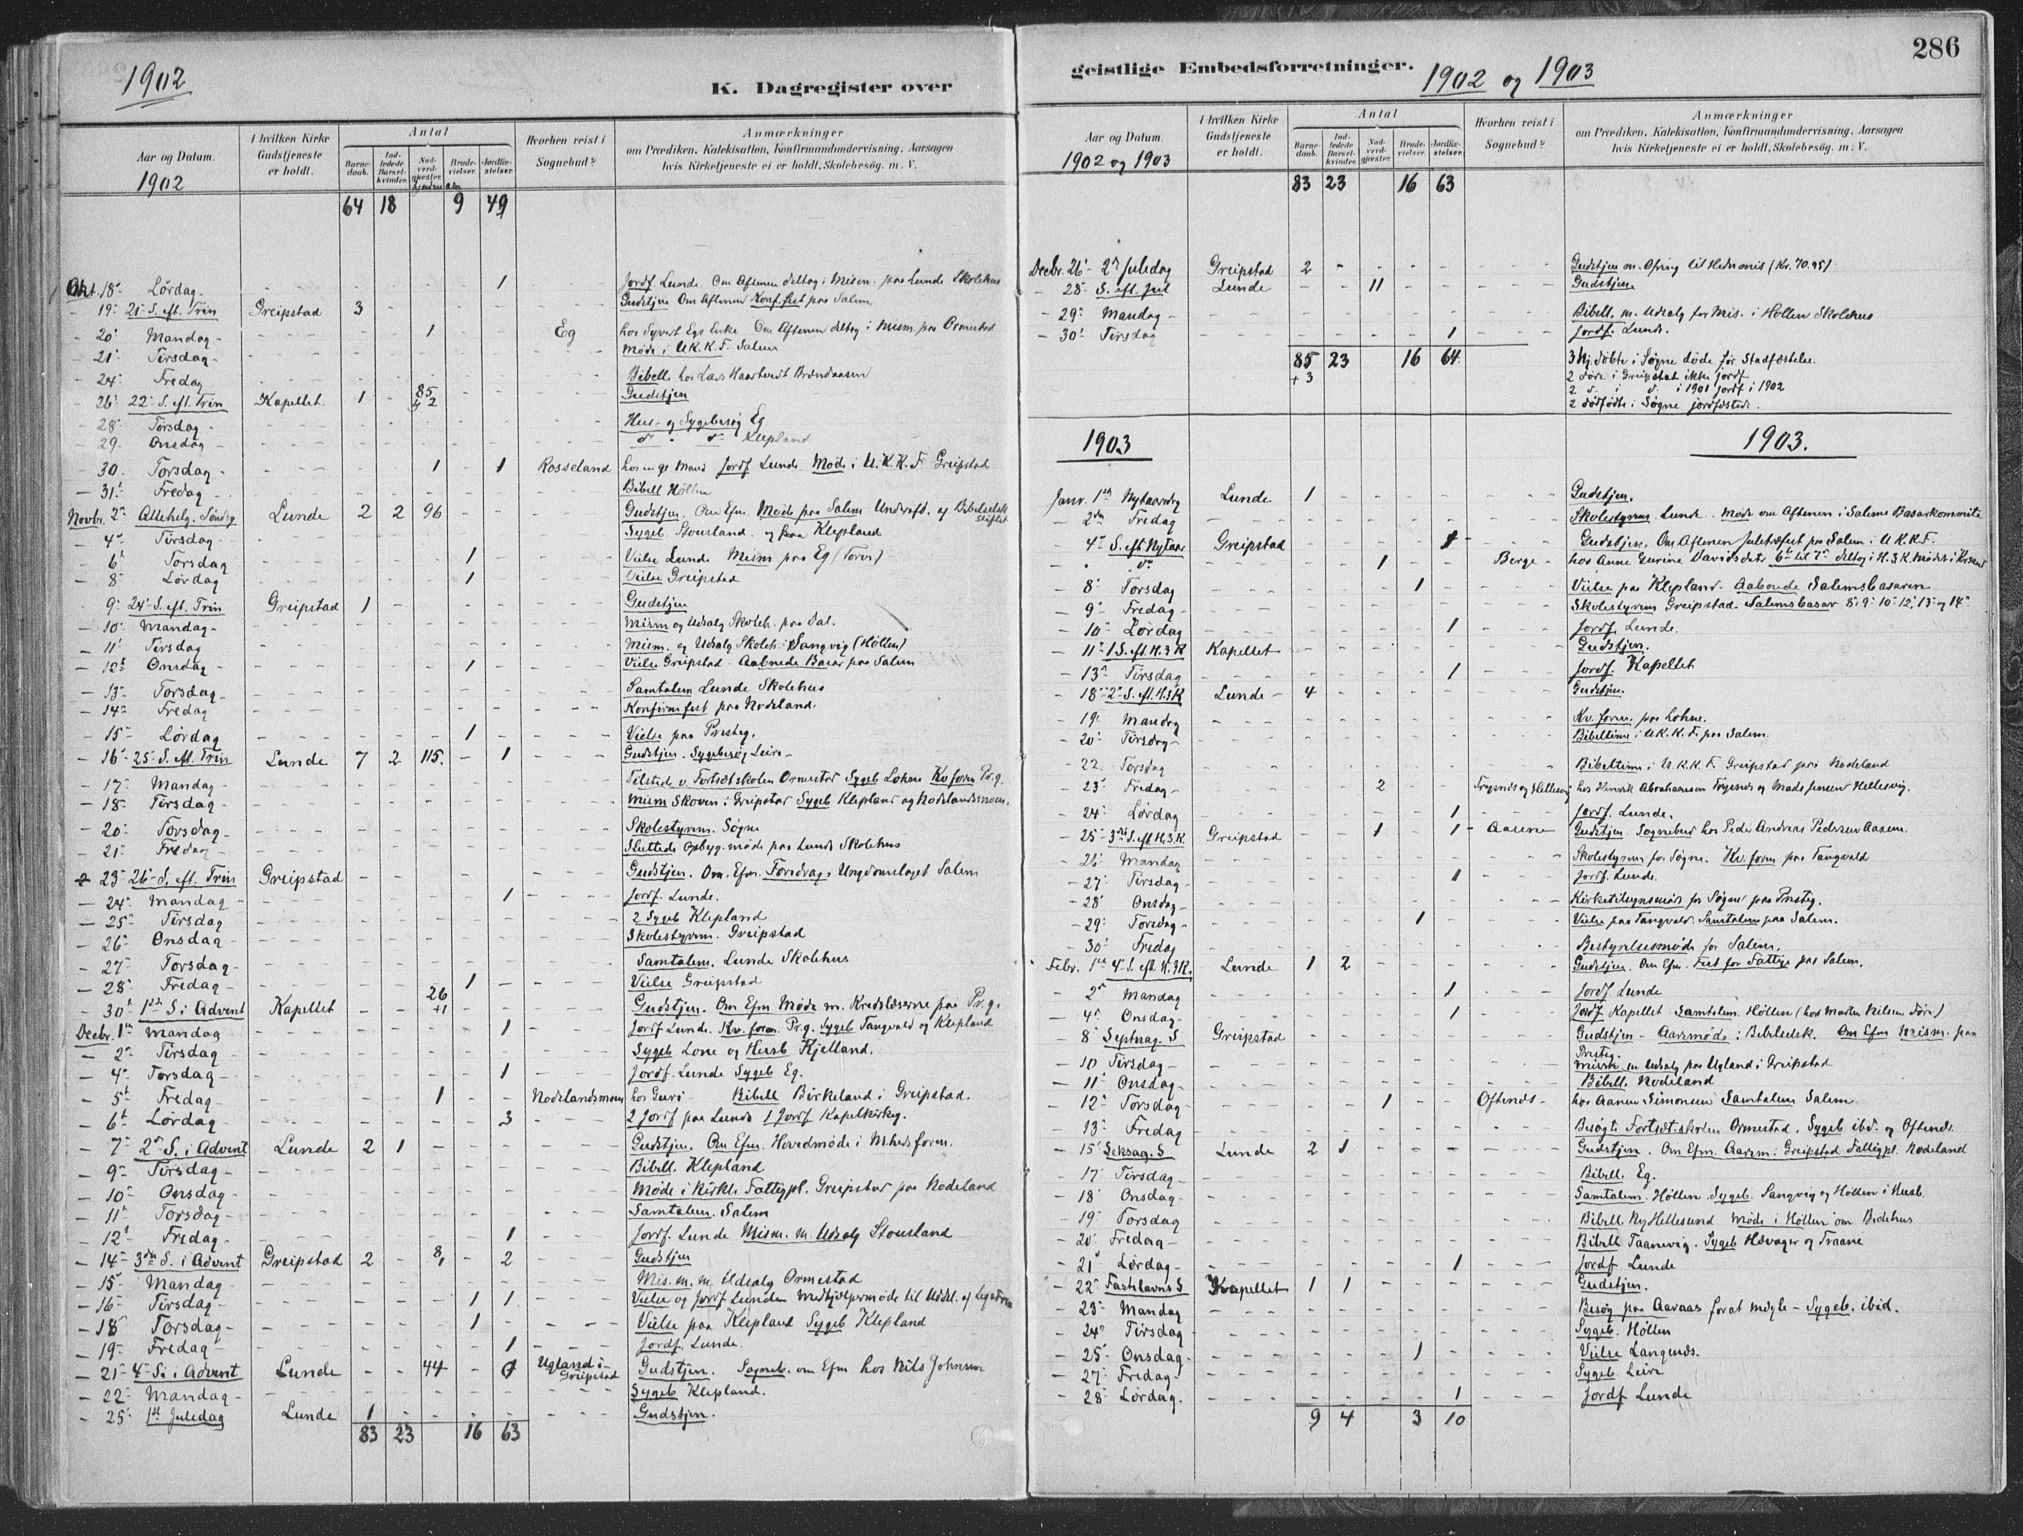 1902
K. Dagregister over
Aar og Datum.
1902
I hvilken Kirke Gudstjeneste er holdt.
Antal
Barne-daab.
Ind-ledede Barsel-kvinder.
Nad-verd-gjester.
Brude-vielser.
Jordfæ-stelser.
Hvorhen reist i Sognebud?
Anmærkninger
om Prædiken, Katekisation, Konfirmandundervisning, Aarsagen
hvis Kirketjeneste ei er holdt, Skolebesøg. m. V.
64 18 9 49
Okt. 18 Lørdag 1 Jordf. Lunde. Om Aftenen deltog i Mism. paa Lunde Skolehus
19 21 S. eft. Trin Greipstad 3 Gudstjen Om Aftenen Konf.fest paa Salem
20 Mandag 1 Eg hos Syvert Egs Enke Om Aftenen deltog i Mism. paa Ormestad
21 Tirsdag Møde i U.K.K.F. Salem
24 Fredag Bibell. hos Lars
26 22 S. eft. Trin Kapellet 1 85 + 2 Gudstjen
28 Tirsdag Hus- og Sygebesøg Eg
29 Onsdag d° d° Klepland
30 Torsdag 1 1 Rosseland Jordf Lunde Møde i U.K.K.F. Greipstad
31 Fredag Bibell Høllen
Novbr. 2 Allehelg. Søndag Lunde 2 2 96 Gudstjen. Om Efm. Møde paa Salem
4 Tirsdag Sygeb. Stousland og paa Klepland
6 Torsdag 1 Vielse Lunde Mism paa Eg
8 Lørdag 1 Vielse Greipstad
9 24 S. eft. Trin Greipstad 1 Gudstjen
10 Mandag Mism og Udsalg Skoleh. paa Dal.
11 Tirsdag Mism. og Udsalg Skoleh i Langvig (Høllen)
12 Onsdag 1 Vielse Greipstad - Aabnede Basar paa Salem
13 Torsdag Samtalem Lunde Skolehus
14 Fredag Konfirmfest paa Nodeland
15 Lørdag 1 Vielse paa Presteg.
16 25 S. eft. Trin Lunde 7 2 115 1 Gudstjen. Sygebesøg Leire
17 Mandag Tilstede v. Fortsætskolen Ormestad Sygeb Lohne Kv foren Pr.g.
18 Tirsdag Mism Skoven i Greipstad Sygeb Klepland og Nodelandsmoen.
20 Torsdag Skolestyrem. Søgne
21 Fredag Sluttede Opbyg. møde paa Lunde Skolehus
23 26 S. eft. Trin Greipstad Gudstjen. Om. Efm. Foredrag i Ungdomslaget Salem
24 Mandag 1 Jordf. Lunde.
25 Tirsdag 2 Sygeb Klepland
26 Onsdag Skolestyrem. Greipstad
27 Torsdag Samtalem. Lunde Skolehus
28 Fredag 1 Vielse Greipstad
30 1ste S. i Advent Kapellet 26 +1 Gudstjen. Om Efm Møde m. Kredslæserne paa Pr.g.
Decbr. 1ste Mandag 1 Jordf Lunde. Kv. foren. Pr.g. Sygeb Tangvald og Klepland
2 Tirsdag Sygeb Lone og Husb Kjelland.
4 Torsdag 1 Jordf. Lunde Sygeb Eg.
5 Fredag 1 Nodelandsmoen hos Guri Bibell Birkeland i Greipstad.
6 Lørdag 3 2 Jordf paa Lunde 1 Jordf Kapelkirkeg.
7 2 S. i Advent Lunde 2 1 Gudstjen. Om Efm. Hovedmøde i M.heds foren.
9 Tirsdag Bibell. Klepland
10 Onsdag Møde i Kirkl. Fattigpl. Greipstad paa Nodeland
11 Torsdag Samtalem. Salem
12 Fredag 1 Jordf. Lunde Mism. m. Udsalg Stousland
14 3die S. i Advent Greipstad 2 8 2 Gudstjen
15 Mandag Mis. m. m. Udsalg Ormestad
16 Tirsdag 1 1 Vielse og Jordf Lunden Medhjelpermøde til Uddel. af
18 Torsdag 1 Vielse paa Klepland Sygeb Klepland
19 Fredag 1 Jordf. Lunde.
21 4 S. i Advent Lunde 44 Ugland i Greipstad Gudstjen. Sogneb. om Efm hos Nils Johnsen
22 Mandag Sygeb Klepland.
25 1ste Juledag Lunde 1 Gudstjen.
83 23 16 63
286
geistlige Embedsforretninger.
1902 og 1903
Aar og Datum.
1902 og 1903
I hvilken Kirke Gudstjeneste er holdt.
Antal
Barne-daab.
Ind-ledede Barsel-kvinder.
Nad-verd-gjester.
Brude-vielser.
Jordfæ-stelser.
Hvorhen reist i Sognebud?
Anmærkninger
om Prædiken, Katekisation, Konfirmandundervisning, Aarsagen
hvis Kirketjeneste ei er holdt, Skolebesøg. m. V.
83 23 16 63
Decbr. 26 2 Juledag Greipstad 2 Gudstjen m. Ofring til Hedmmis (Kr. 70.95)
28 S. eft. Jul Lunde 11 Gudstjen
29 Mandag Bibell. m. Udsalg for Mis. i Høllen Skolehus
30 Tirsdag 1 Jordf. Lunde.
85 23 16 64 3 Hj.døbte i Søgne døde før Stadfæstelse
+ 3 2 døde i Greipstad ikke jordf
2 d. i d. i 1901 jordf i 1902
2 dødfødte i Søgne jordfæstede.
1903 1903.
Janr. 1ste Nytaarsdag Lunde 1 Gudstjen.
2den Fredag Skolestyrem Lunde. Møde om Aftenen i Salems Basarkommite
4 S. eft Nytaar Greipstad Gudstjen. Om Aftenen Juletræfest paa Salem i U.K.K.F.
d° 1 Berge hos Anne Gurine Davidsdatr. 6te til 7 deltog i
8 Torsdag 1 Vielse paa Klepland. Aabnede Salemsbasaren
9 Fredag Skolestyrem Greipstad. Salemsbasar 8 9 10 12 13 og 14
10 Lørdag 1 Jordf. Lunde.
11 1 S. eft. H.3.K Kapellet Gudstjen.
13 Tirsdag 1 Jordf. Kapellet
18 2 S. eft. H.3.K Lunde 4 Gudstjen.
19 Mandag Kv. foren. paa Lohne.
20 Tirsdag Bibeltime i U.K.K.F. paa Salem.
22 Torsdag Bibeltime i U.K.K.F. Greipstad paa Nodeland
23 Fredag 2 Trysnes og Hellesvig hos Henrik Abrahamsen Trysnes og Mads Jensen Hellesvig.
24 Lørdag 1 Jordf. Lunde.
25 3die S. eft H.3.K. Greipstad 1 1 Aasene Gudstjen. Sognebud hos Peder Andreas Pedersen Aasen.
26 Mandag Skolestyrem for Søgne. Kv. foren paa Tangvald
27 Tirsdag 1 Jordf. Lunde.
28 Onsdag Kirketilsynsmøde for Søgne paa Presteg.
29 Torsdag 1 Vielse paa Tangvald. Samtalem paa Salem.
30 Fredag Bestyrelsesmøde for Salem.
Febr. 1ste 4 S. eft. H.3K. Lunde 1 2 Gudstjen. Om Efm. Fest for Fattige paa Salem.
2 Mandag 1 Jordf Lunde
4 Onsdag 1 Jordf Kapellet Samtalem. Høllen (hos Morten Nilsen Dør)
8 Septuag. S Greipstad Gudstjen - Aarsmøde i Bibelselsk. Om Efm Mism. paa Presteg
10 Tirsdag Mism m Udsalg paa Ugland i Greipstad
11 Onsdag Bibell. Nodeland
12 Torsdag 1 Oftenes hos Aanen Simonsen Samtalem Salem
13 Fredag Besøgte Fortsæt.skolen Ormestad. Sygeb ibid. og Oftenes
15 Seksag. S Lunde 2 1 Gudstjen. Om Efm. Aarsm: Greipstad Fattigpl. Nodeland
17 Tirsdag Bibell. Eg.
18 Onsdag Samtalem. Høllen. Sygeb. Langvig og Høllen i Husb.
19 Torsdag Bibell Ny Hellesund Møde i Høllen om Bedehus
20 Fredag Bibell Taanevig. Sygeb Høvager og Traane
21 Lørdag 1 Jordf Lunde
22 Fastelavns S Kapellet 1 1 Gudstjen.
23 Mandag Besøg paa Aavaas for at mægle - Sygeb. ibid.
24 Tirsdag Sygeb. Høllen
25 Onsdag 1 Vielse Langenes.
27 Fredag Sygeb. Leire
28 Lørdag. 1 Jordf Lunde
9 4 3 10